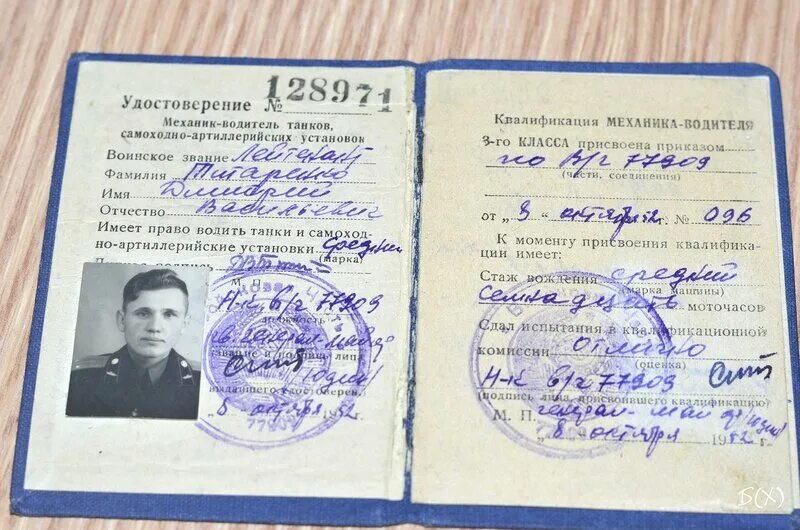 128971
Удостоверение №
Механик-водитель танков,
самоходно-артиллерийских установок
Воинское звание Лейтенант
Фамилия
Имя Дмитрий
Отчество Васильевич
Имеет право водить танки и самоход-
но-артиллерийские установки средний
(марка)
Личная подпись
М. П.
Н-к в/ч 77909
должность
гв. генерал-майор
звание и подпись лица,
выдавшего удостоверен.
"8" октября 1952
Квалификация МЕХАНИКА-ВОДИТЕЛЯ
3-го КЛАССА присвоена приказом
по в/ч 77909
(части, соединения)
от "8" октября г. № 096
К моменту присвоения квалифика-
ции имеет:
Стаж вождения средний
(марка машины)
семнадцать моточасов
Сдал испытания в квалификационной
комиссии отлично
(оценка)
Н-к в/ч 77909
(подпись лица, присвоившего квалификацию)
М. П. генерал-майор
"8" октября 1952 г.
Б(Х)